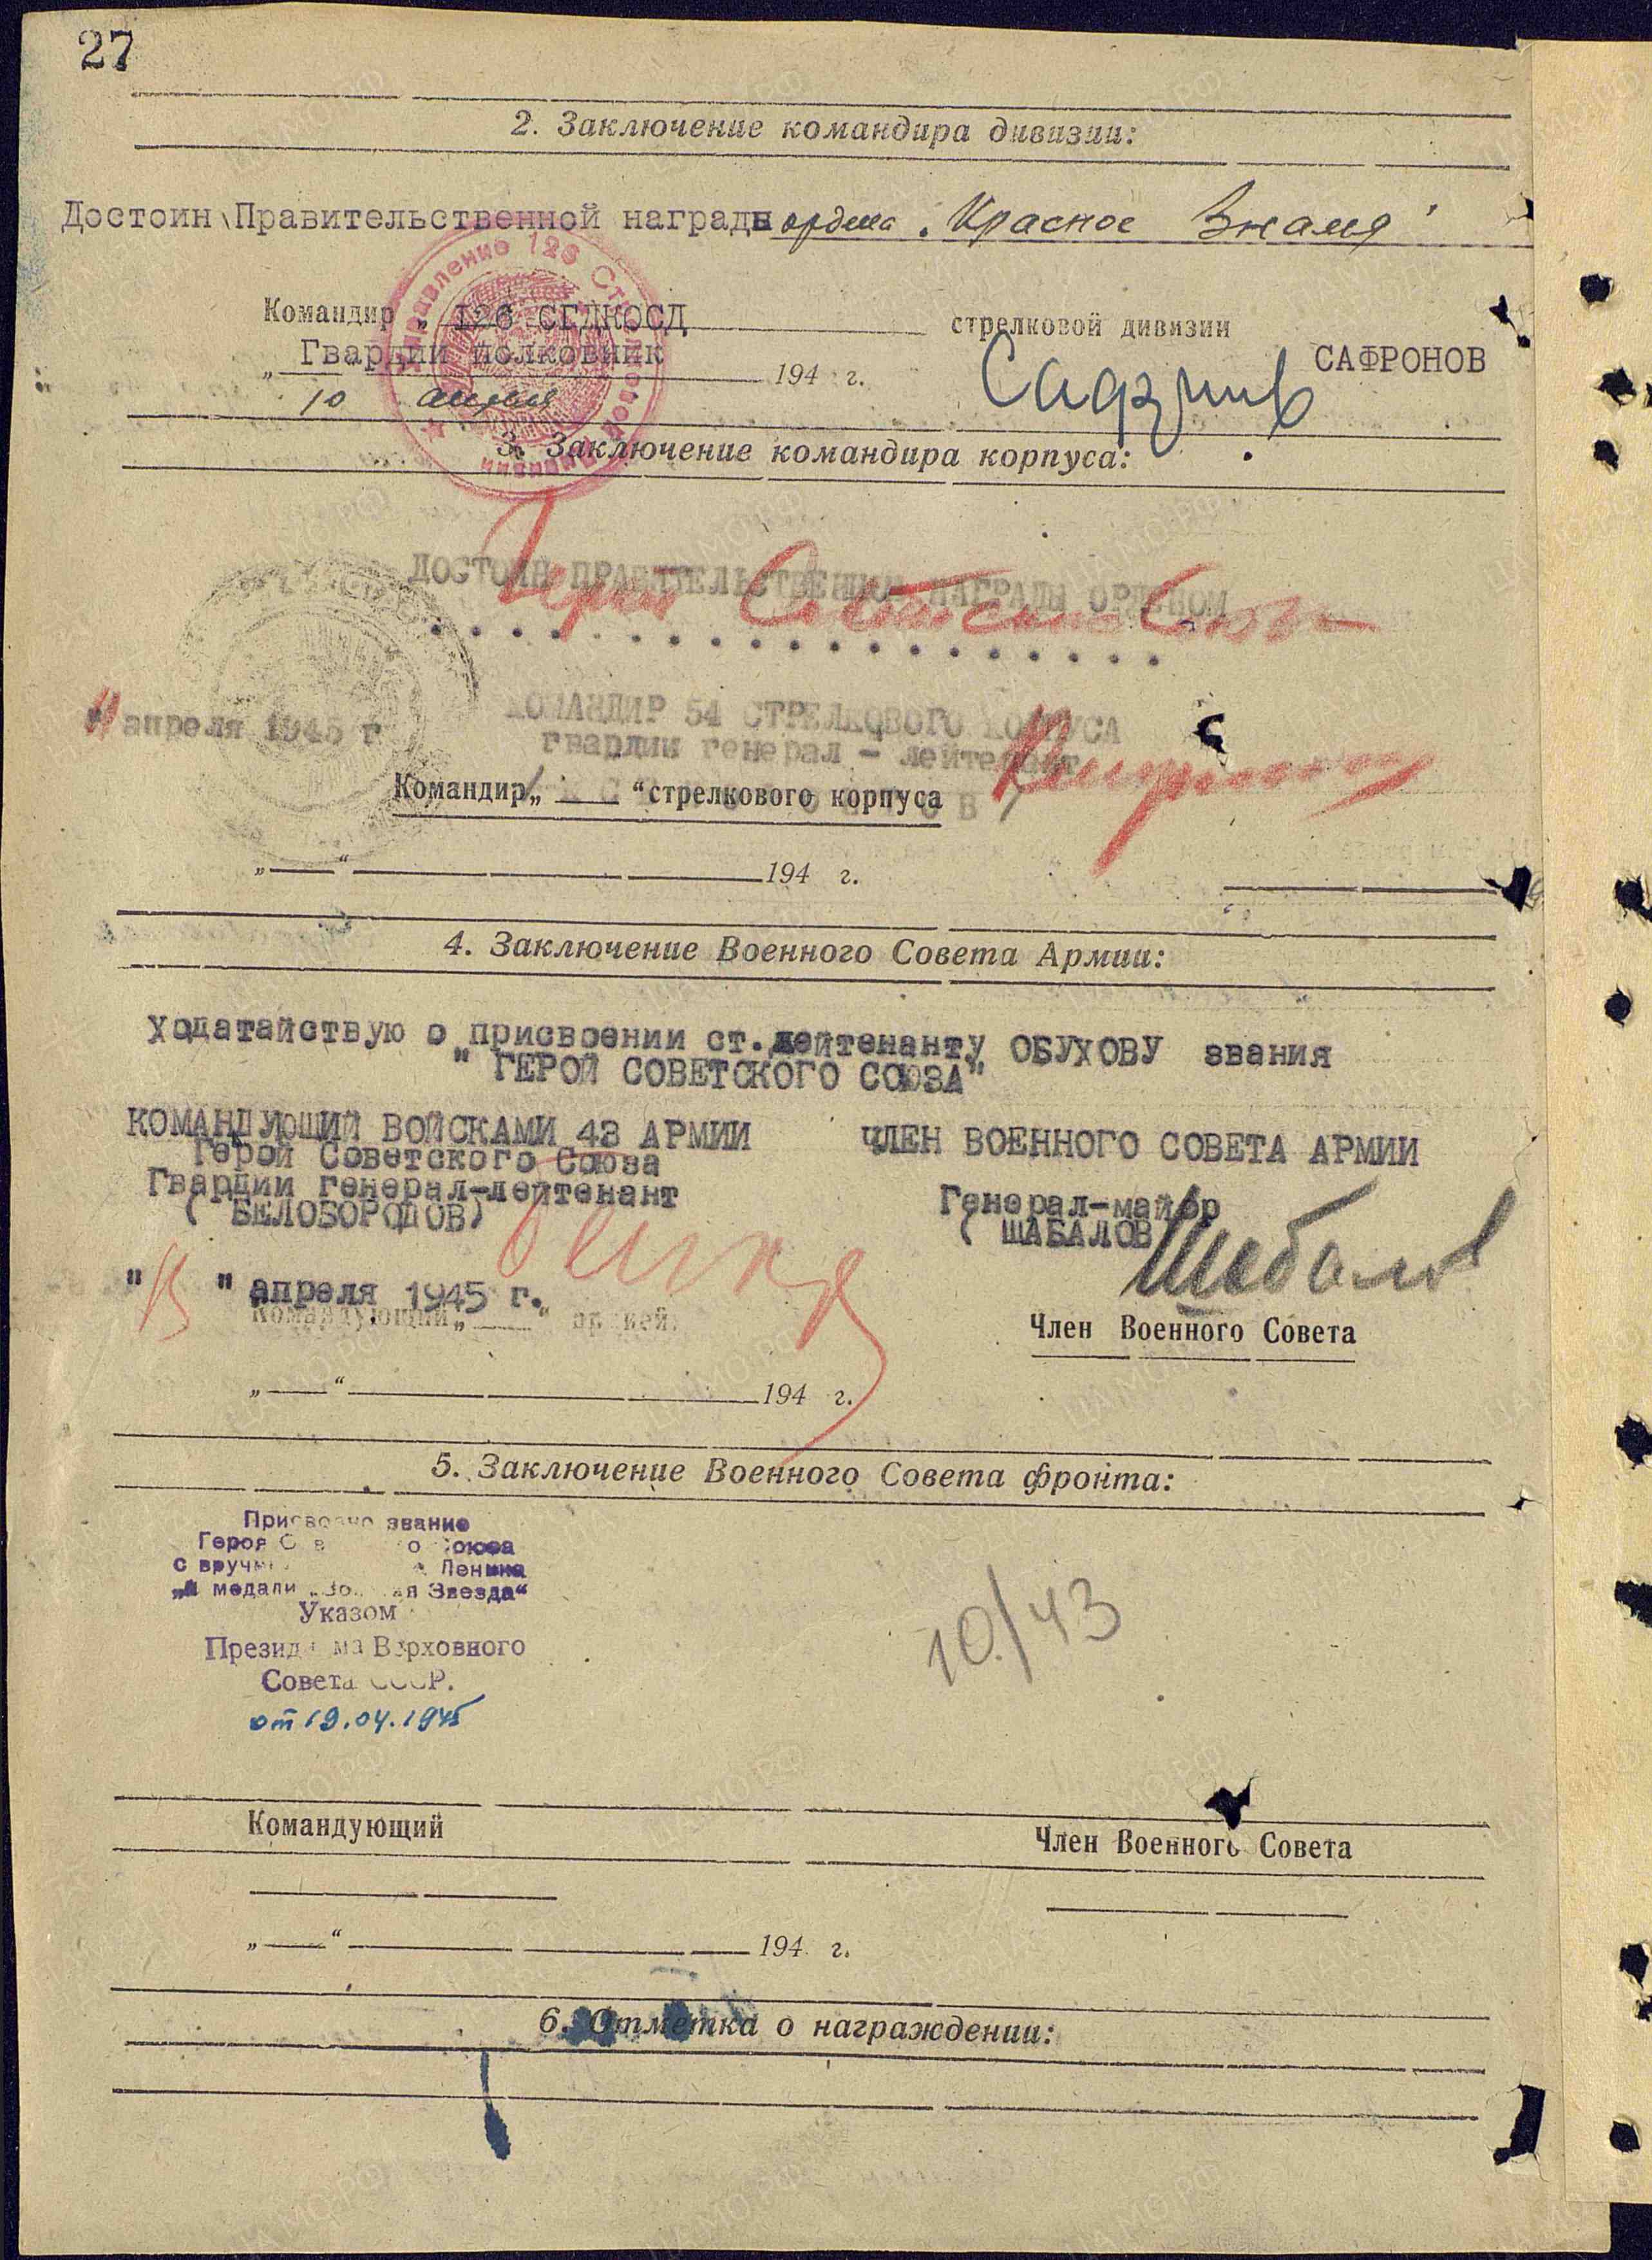 27
2. Заключение командира дивизии:
Достоин Правительственной награды ордена "Красное Знамя"
Командир „ 126 СГДКОСД стрелковой дивизии
Гвардии полковник
САФРОНОВ
„ 194 г.
10 апреля
Управление 126 Стрелковой дивизии
3. Заключение командира корпуса:
ДОСТОИН ПРАВИТЕЛЬСТВЕННОЙ НАГРАДЫ ОРДЕНОМ
Герой Советского Союза
КОМАНДИР 54 СТРЕЛКОВОГО КОРПУСА
"11" апреля 1945 г
гвардии генерал - лейтенант
Командир „ “ стрелкового корпуса
„ “ 194 г.
4. Заключение Военного Совета Армии:
Ходатайствую о присвоении ст.лейтенанту ОБУХОВУ звания
" ГЕРОЙ СОВЕТСКОГО СОЮЗА"
КОМАНДУЮЩИЙ ВОЙСКАМИ 43 АРМИИ ЧЛЕН ВОЕННОГО СОВЕТА АРМИИ
Герой Советского Союза
Гвардии генерал-лейтенант Генерал-майор
( БЕЛОБОРОДОВ) ( ШАБАЛОВ
" 13 " апреля 1945 г.
Командующий „ “ армией:
Член Военного Совета
„ “ 194 г.
5. Заключение Военного Совета фронта:
Присвоено звание
Героя Советского Союза
с вруч Ленина
„и медали „Золотая Звезда“
Указом
Президиума Верховного
Совета СССР.
от 19.04.1945
10/43
Командующий
Член Военного Совета
„ “ 194 г.
6. Отметка о награждении: